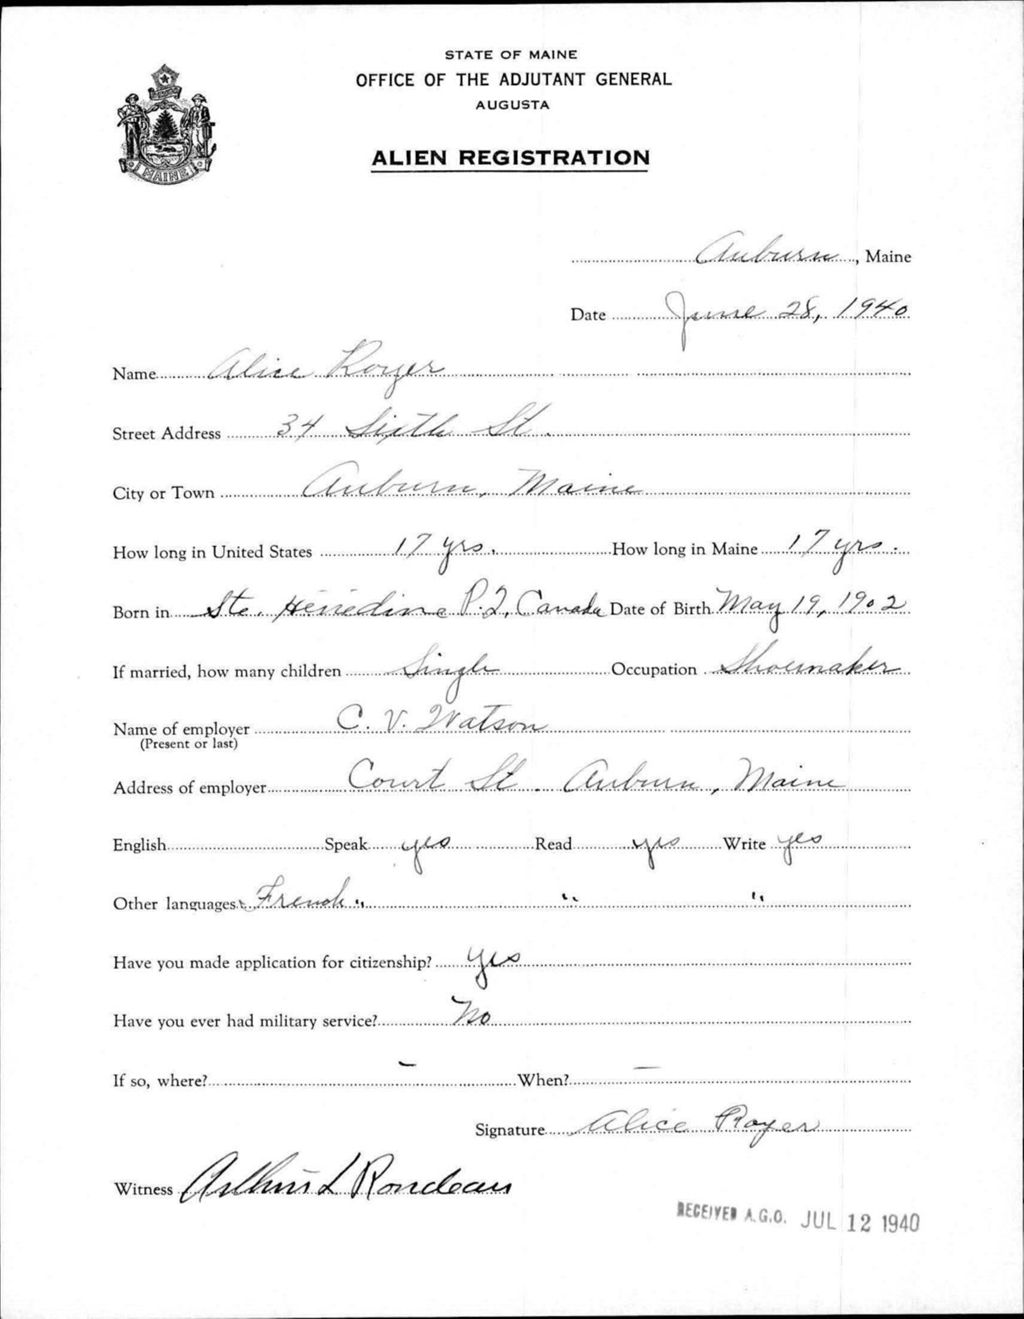 STATE OF MAINE
OFFICE OF THE ADJUTANT GENERAL
AUGUSTA
ALIEN REGISTRATION
MAINE
Auburn, Maine
Date June 28, 1940
Name Alice Royer
Street Address 34 Sixth St.
City or Town Auburn, Maine
How long in United States 17 yrs. How long in Maine 17 yrs.
Born in Ste. Henedine P.Q. Canada Date of Birth May 19, 1902
If married, how many children Single Occupation Shoemaker
Name of employer C. V. Watson
(Present or last)
Address of employer Court St. Auburn, Maine
English Speak yes Read yes Write yes
Other languages French " " "
Have you made application for citizenship? yes
Have you ever had military service? No
If so, where? - When? -
Signature Alice Royer
Witness Arthur L Rondeau
RECEIVED A.G.O. JUL 12 1940